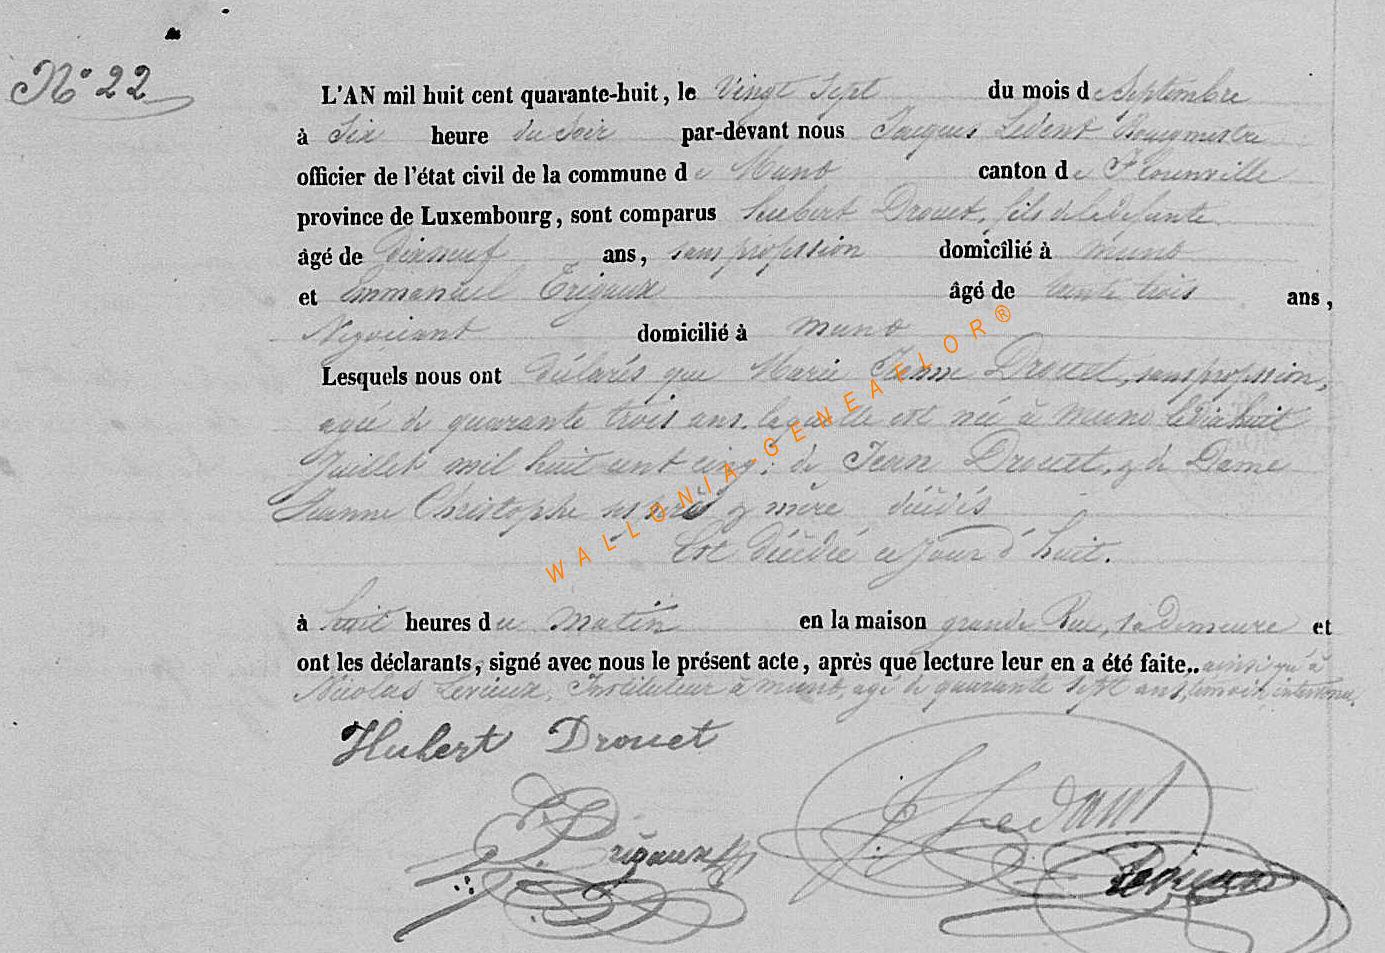 N° 22
L'AN mil huit cent quarante-huit, le Vingt Sept du mois de Septembre
à Six heure du Soir par-dévant nous Jacques Ledent Bourgmestre
officier de l'état civil de la commune de Muno canton de Florenville
province de Luxembourg, sont comparus Hubert Drouet, fils de la défunte
âgé de dixneuf ans, sans profession domicilié à muno
et Emmanuel Trigaux âgé de trente trois ans,
Négociant domicilié à muno
Lesquels nous ont déclarés que Marie Jeanne Drouet, sans profession,
agée de quarante trois ans, laquelle est née à Muno le dix huit
Juillet mil huit cent cinq, de Jean Drouet, & de Dame
Jeanne Christophe ses père & mère décédés
Est décédée ce jour d'huit.
à huit heures du matin en la maison grande Rue, sa demeure et
ont les déclarants, signé avec nous le présent acte, après que lecture leur en a été faite.. ainsi qu'à
Nicolas Lerieux, Instituteur à muno, agé de quarante sept ans, témoin intervenu.
Hubert Drouet
E. Trigaux
J. Ledant
WALLONIA-GENEAFLOR®